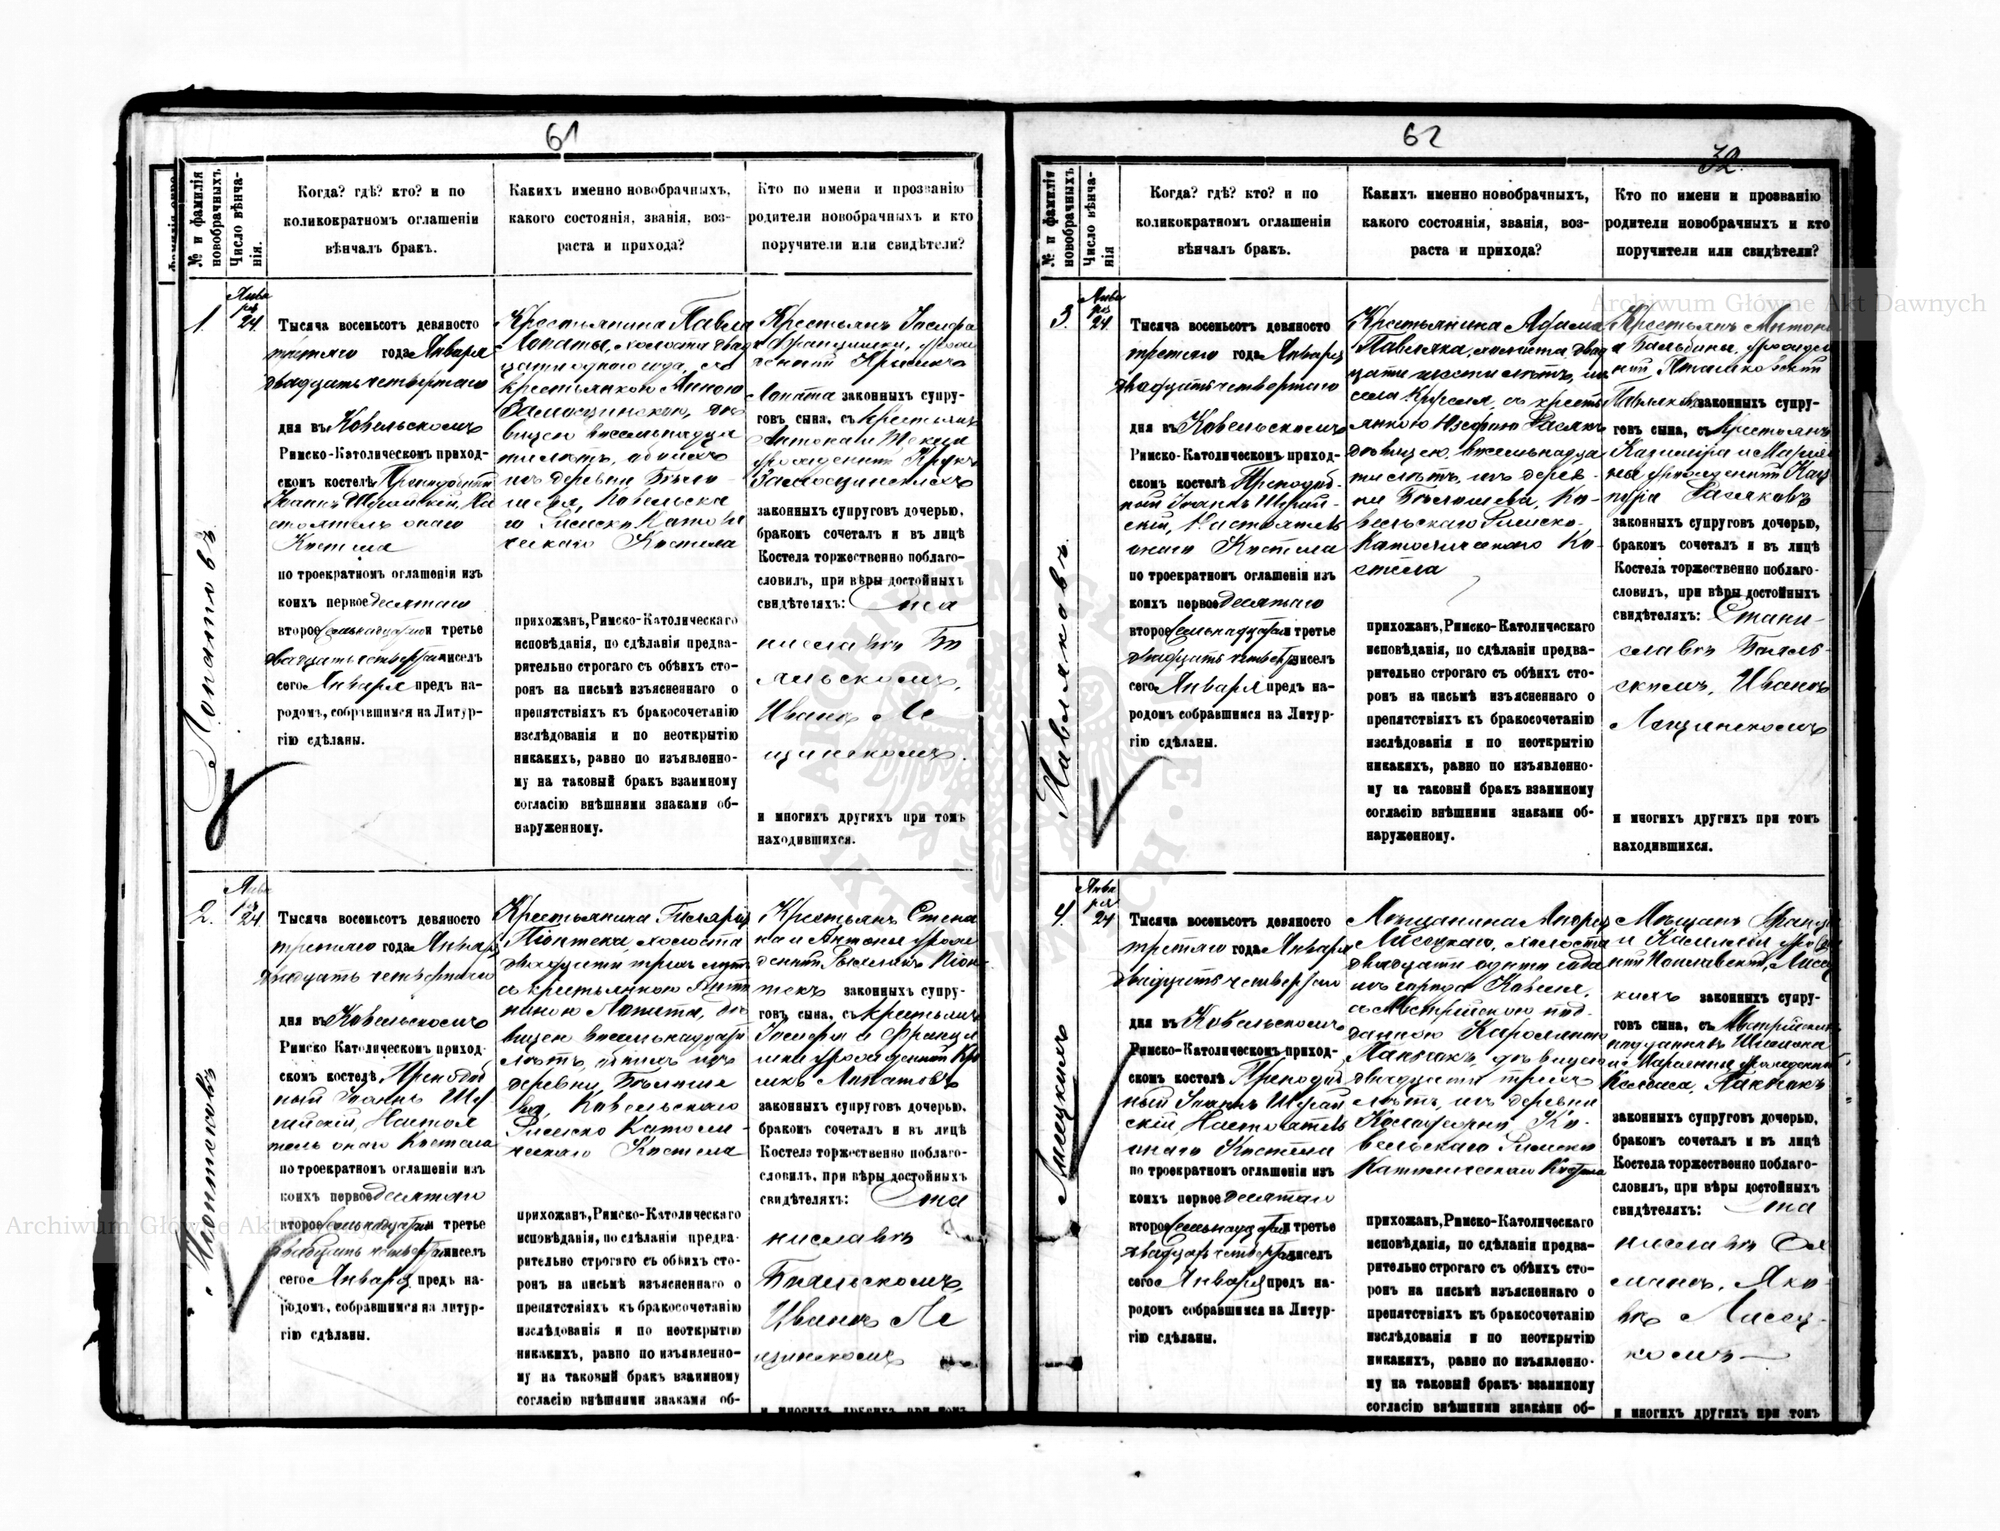 61
№ и фамилія новобрачныхъ.
Число вѣнча-
нія.
Когда? гдѣ? кто? и по
коликократномъ оглашеніи
вѣнчалъ бракъ.
Какихъ именно новобрачныхъ,
какого состоянія, званія, воз-
раста и прихода?
Кто по имени и прозванію
родители новобрачныхъ и кто
поручители или свидѣтели?
1.
Янва
ря
24
Лопатовъ
Тысяча восемьсотъ девяносто
третяго года Января
двадцать четвертаго
дня въ Ковельскомъ
Римско-Католическомъ приход-
скомъ костелѣ Преподобный
Іоаннъ Шурайскій, На
стоятель онаго
Костела
по троекратномъ оглашеніи изъ
коихъ первое десятаго
второе семьнадцатаго и третье
двадцать четвертаго чиселъ
сего Января предъ на-
родомъ, собравшимся на Литур-
гію сдѣланы.
Крестьянина Павла
Лопаты, холоста двад
цати одного года, съ
крестьянкою Анною
Замосцинскою, дѣ
вицею восемьнадца
ти лѣтъ, обоихъ
изъ деревни Бѣло-
шева, Ковельска
го Римско Католи
ческаго Костела
прихожанъ, Римско-Католическаго
исповѣданія, по сдѣланіи предва-
рительно строгаго съ обѣихъ сто-
ронъ на письмѣ изъясненнаго о
препятствіяхъ къ бракосочетанію
изслѣдованія и по неоткрытію
никакихъ, равно по изъявленно-
му на таковый бракъ взаимному
согласію внѣшними знаками об-
наруженному.
Крестьянъ Іосифа
и Францишки, урож
денной
Лопата законныхъ супру-
говъ сына, съ крестьянъ
Антона и
урожденной Крукъ
Замосцинскихъ
законныхъ супруговъ дочерью,
бракомъ сочеталъ и въ лицѣ
Костела торжественно поблаго-
словилъ, при вѣры достойныхъ
свидѣтеляхъ: Ста
ниславъ Бѣ
льскомъ,
Иванъ Ле
щинскомъ.
и многихъ другихъ при томъ
находившихся.
2.
Янва
ря
24
Піонтековъ
Тысяча восемьсотъ девяносто
третяго года Января
двадцать четвертаго
дня въ Ковельскомъ
Римско Католическомъ приход-
скомъ костелѣ Преподоб
ный Іоаннъ Шу
райскій, Настоя
тель онаго Костела
по троекратномъ оглашеніи изъ
коихъ первое десятаго
второе семьнадцатаго и третье
двадцать четвертаго чиселъ
сего Января предъ на-
родомъ, собравшимся на литур-
гію сдѣланы.
Крестьянина Гилярія
Піонтека, холоста
двадцати трехъ лѣтъ
съ крестьянкою Анто
ниною Лопата, дѣ
вицею восемьнадцати
лѣтъ, обоихъ изъ
деревни Бѣлоше
ва, Ковельскаго
Римско Католи-
ческаго Костела
прихожанъ, Римско-Католическаго
исповѣданія, по сдѣланіи предва-
рительно строгаго съ обѣихъ сто-
ронъ на письмѣ изъясненнаго о
препятствіяхъ къ бракосочетанію
изслѣдованія и по неоткрытію
никакихъ, равно по изъявленно-
му на таковый бракъ взаимному
согласію внѣшними знаками об-
Крестьянъ Степа
на и Антоны урож
денной Піон-
текъ законныхъ супру-
говъ сына, съ крестьянъ
Іосифа и Францы
шки урожденной
Лопатовъ
законныхъ супруговъ дочерью,
бракомъ сочеталъ и въ лицѣ
Костела торжественно поблаго-
словилъ, при вѣры достойныхъ
свидѣтеляхъ: Ста
ниславъ
Бѣльскомъ,
Иванъ Ле
щинскомъ
и многихъ другихъ при томъ
62
32.
№ и фамилія новобрачныхъ.
Число вѣнча-
нія
Когда? гдѣ? кто? и по
коликократномъ оглашеніи
вѣнчалъ бракъ.
Какихъ именно новобрачныхъ,
какого состоянія, званія, воз-
раста и прихода?
Кто по имени и прозванію
родители новобрачныхъ и кто
поручители или свидѣтели?
3.
Янва
ря
24
Павляковъ.
Тысяча восемьсотъ девяносто
третяго года Января
двадцать четвертаго
дня въ Ковельскомъ
Римско-Католическомъ приход-
скомъ костелѣ Преподоб
ный Іоаннъ Шурай
скій, Настоятель
онаго Костела
по троекратномъ оглашеніи изъ
коихъ первое десятаго
второе семьнадцатаго и третье
двадцать четвертаго чиселъ
сего Января предъ на-
родомъ собравшимся на Литур-
гію сдѣланы.
Крестьянина Адама
Павляка, холоста двад
цати шести лѣтъ, изъ
села, съ кресть
янкою Юзефою
дѣвицею, восемьнадца
ти лѣтъ, изъ дерев-
ни Бѣлошева, Ко-
вельскаго Римско-
Католическаго Ко-
стела
прихожанъ, Римско-Католическаго
исповѣданія, по сдѣланіи предва-
рительно строгаго съ обѣихъ сто-
ронъ на письмѣ изъясненнаго о
препятствіяхъ къ бракосочетанію
изслѣдованія и по неоткрытію
никакихъ, равно по изъявленно-
му на таковый бракъ взаимному
согласію внѣшними знаками об-
наруженному.
Крестьянъ Антона
и Бальбины, урожден
ной
Павляковъ законныхъ супру-
говъ сына, съ крестьянъ
Казиміра и Маріян
ны урожденной
законныхъ супруговъ дочерью,
бракомъ сочеталъ и въ лицѣ
Костела торжественно поблаго-
словилъ, при вѣры достойныхъ
свидѣтеляхъ: Стани-
славъ Бѣль-
скомъ, Иванъ
Лещинскомъ
и многихъ другихъ при томъ
находившихся.
4.
Янва
ря
24
Лисецкихъ
Тысяча восемьсотъ девяносто
третяго года Января
двадцать четвертаго
дня въ Ковельскомъ
Римско-Католическомъ приход-
скомъ костелѣ Преподоб
ный Іоаннъ Шурай
скій, Настоятель
онаго Костела
по троекратномъ оглашеніи изъ
коихъ первое десятаго
второе семьнадцатаго и третье
двадцать четвертаго чиселъ
сего Января предъ на-
родомъ собравшимся на Литур-
гію сдѣланы.
Мѣщанина Андрея
Лисецкаго, холоста
двадцати одного года
изъ города Ковеля,
съ Австрійскою под-
данною Каролиною
дѣвицею
двадцати трехъ
лѣтъ, изъ деревни
Ко-
вельскаго Римско
Католическаго Костела
прихожанъ, Римско-Католическаго
исповѣданія, по сдѣланіи предва-
рительно строгаго съ обѣихъ сто-
ронъ на письмѣ изъясненнаго о
препятствіяхъ къ бракосочетанію
изслѣдованія и по неоткрытію
никакихъ, равно по изъявленно-
му на таковый бракъ взаимному
согласію внѣшними знаками об-
Мѣщанъ
и Камиллы, урожден
ной Лисец
кихъ законныхъ супру-
говъ сына, съ Австрійскихъ
подданныхъ
и Маріанны урожденной
законныхъ супруговъ дочерью,
бракомъ сочеталъ и въ лицѣ
Костела торжественно поблаго-
словилъ, при вѣры достойныхъ
свидѣтеляхъ: Ста
ниславъ
Яко-
въ Лисец-
комъ
и многихъ другихъ при томъ
Archiwum Główne Akt Dawnych
Archiwum Główne Akt
ARCHIWUM GŁÓWNE AKT DAWNYCH